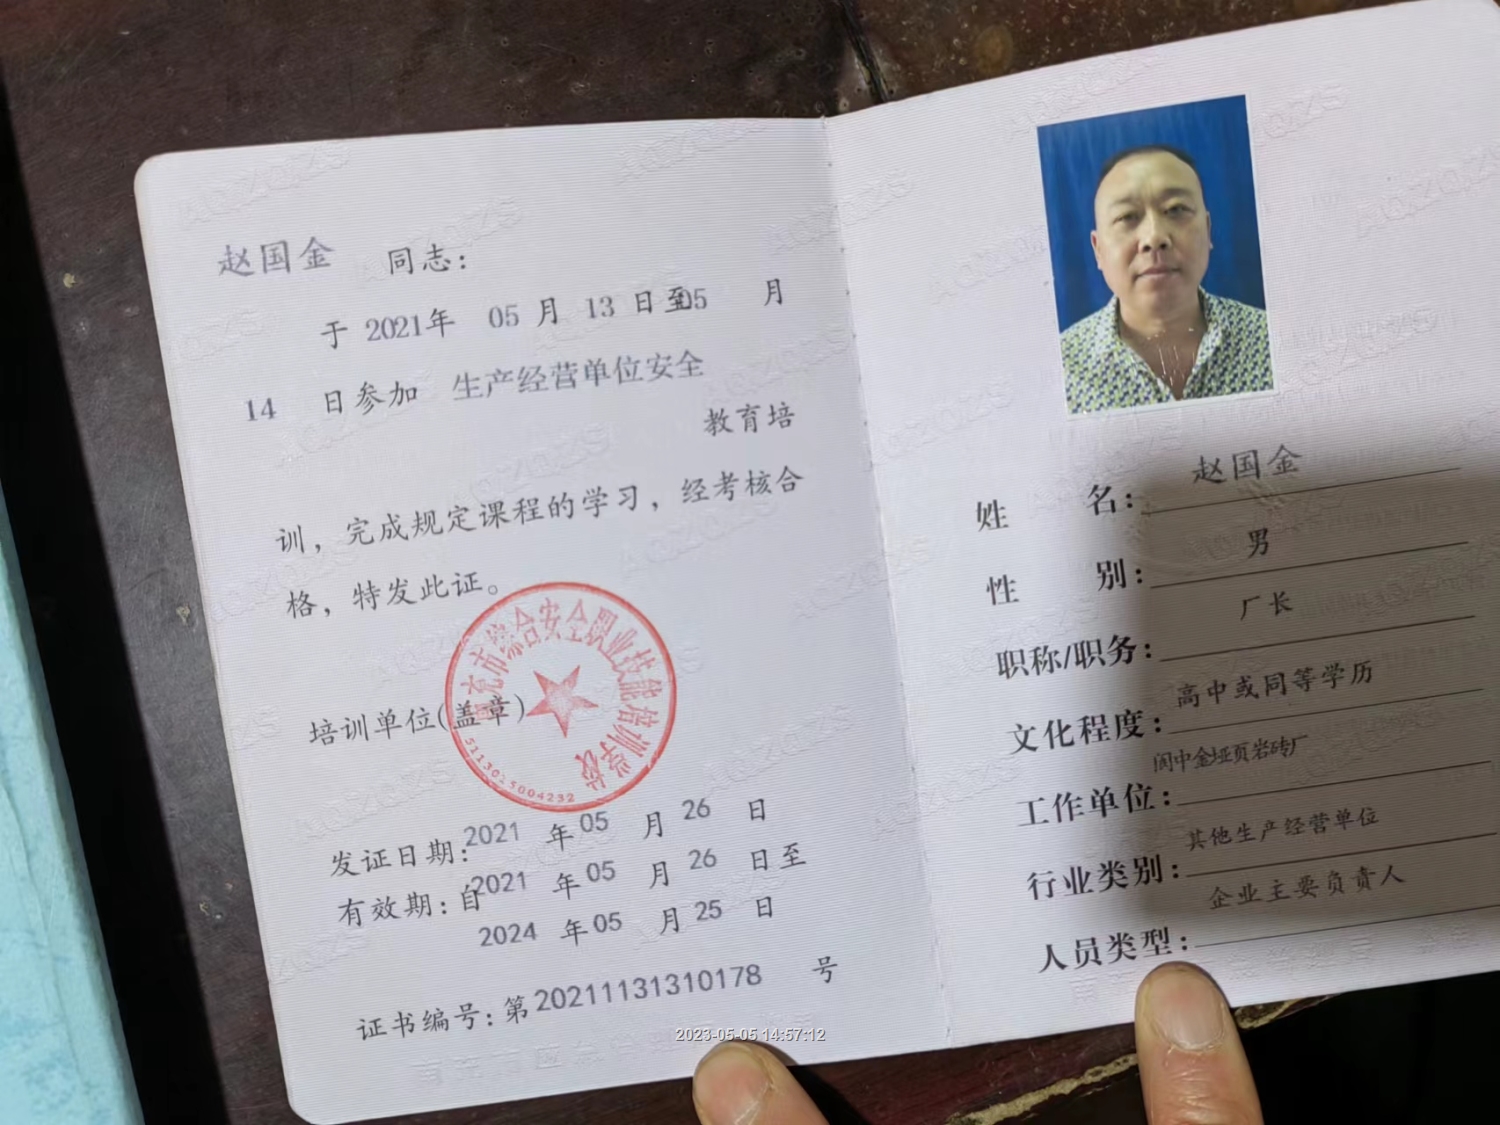 赵国金 同志：
于 2021年 05 月 13 日至05 月
14 日参加 生产经营单位安全
教育培
训，完成规定课程的学习，经考核合
格，特发此证。
充市综合安全职业技能培训学校
培训单位(盖章)
发证日期：2021 年05 月 26 日
有效期：自2021 年05 月 26 日至
2024 年05 月25 日
证书编号：第20211131310178 号
姓 名： 赵国金
性 别： 男
职称/职务： 厂长
文化程度： 高中或同等学历
工作单位： 阆中金垭页岩砖厂
行业类别： 其他生产经营单位
人员类型： 企业主要负责人
2023-05-05 14:57:12